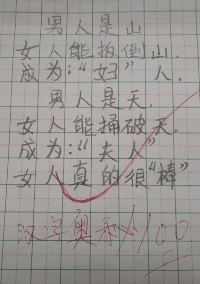 男人是山
女人能扳倒山.
成为:“妇” 人.
男人是天.
女人能捅破天.
成为:“夫人”
女人真的很“棒”
汉字奥秘100